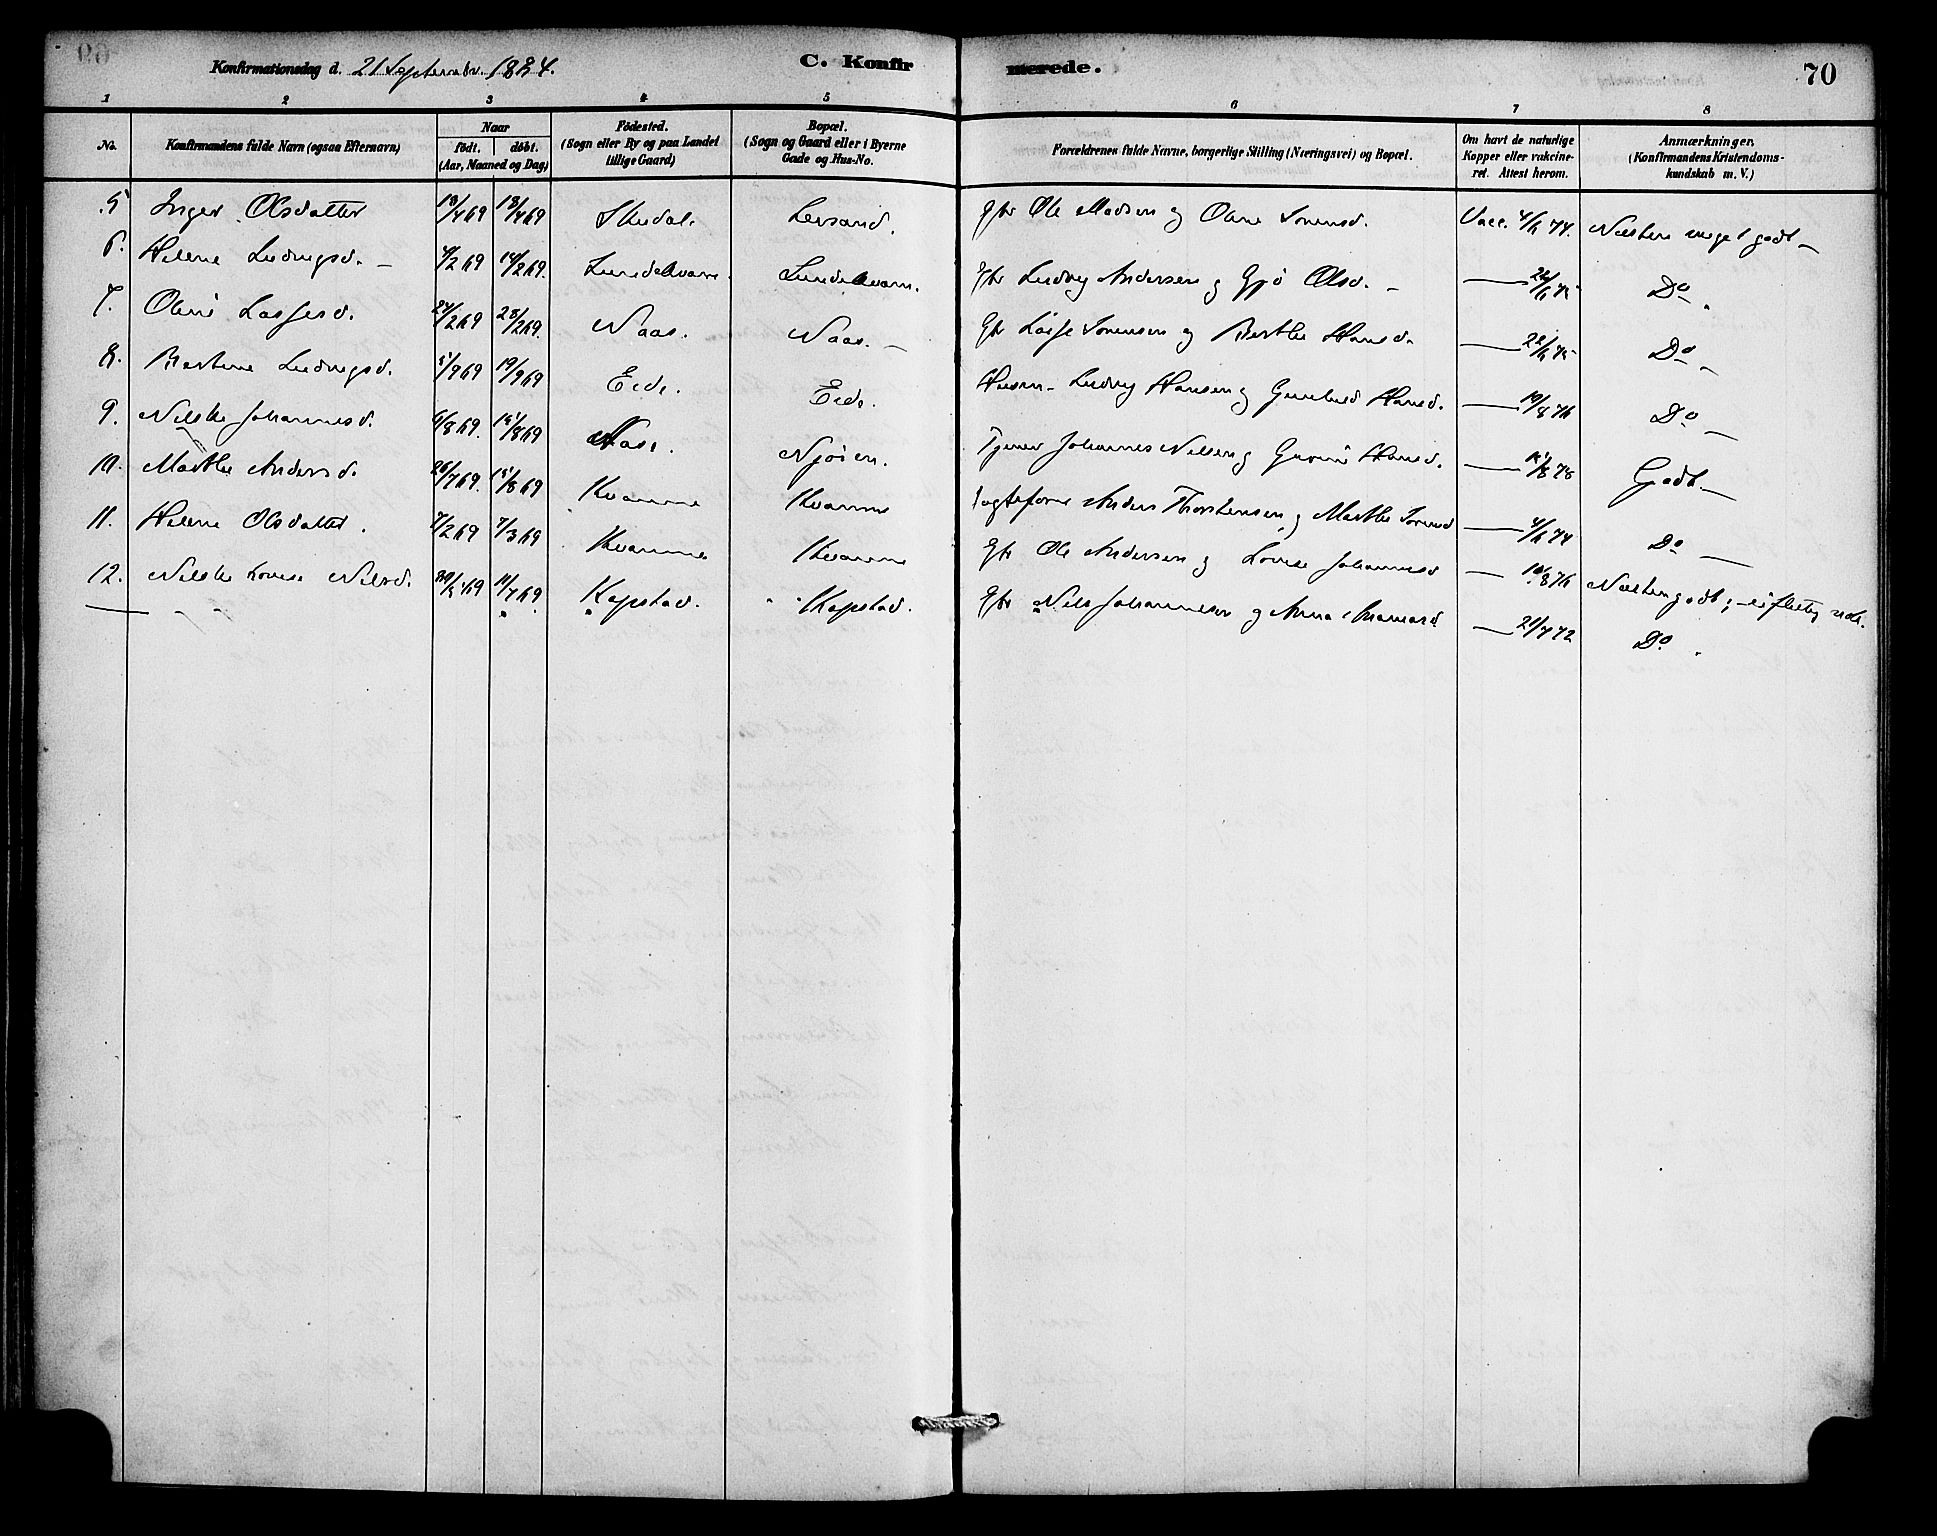 Konfirmationsdag d. 21 Septembr. 1884.
C. Konfirmerede.
70
1 2 3 4 5 6 7 8
No. Konfirmandens fulde Navn (ogsaa Efternavn) Naar født. døbt. (Aar, Maaned og Dag) Fødested. (Sogn eller By og paa Landet tillige Gaard) Bopæl. (Sogn og Gaard eller i Byerne Gade og Hus-No. Forældrenes fulde Navne, borgerlige Stilling (Næringsvei) og Bopæl. Om havt de naturlige Kopper eller vakcineret. Attest herom. Anmærkninger. (Konfirmandens Kristendomskundskab m. V.)
5 Inger Olsdatter 18/4 69 18/4 69 Skudal. Leirsand. Gbr Ole Madsen og Oline Sorensd. Vacc. 4/6 74. Næsten meget godt —
6. Helene Ludvigsd. — 4/2 69 14/2 69. Lundekvam. Lundekvam. Gbr Ludvig Andersen og Gjø Olsd. — — 22/6 75 Do
7. Oline Lassesd. 24/2 69 28/2 69. Naas. Naas. — Gbr Lasse Sorensen og Berthe Hansd. — 22/6 75 Do —
8. Bertine Ludvigsd. 5/9 69 19/9 69 Eide. Eide. Husm. Ludvig Hansen og Gunhild Hansd. — 19/8 76 Do —
9. Nilske Johannesd. 6/8 69. 15/8 69 Naas. Njøien. Tjener Johannes Nilsen og Gurine Hansd. — 15/8 78 Godt —
10. Marthe Andersd. 26/7 69. 15/8 69 Kvamme Kvamme Anders Thorstensen og Marthe Sorensd — 4/6 74 Do —
11. Helene Olsdatter. 7/2 69 7/3 69 Kvamme Kvamme Gbr Ole Andersen og Lovise Johannesd — 19/8 76 Næsten godt;
12. Nilske Lovise Nilsd. 69 11/7 69. Kopstad. Kopstad. Gbr Nils Johannesen og Anna — 21/7 72 Do